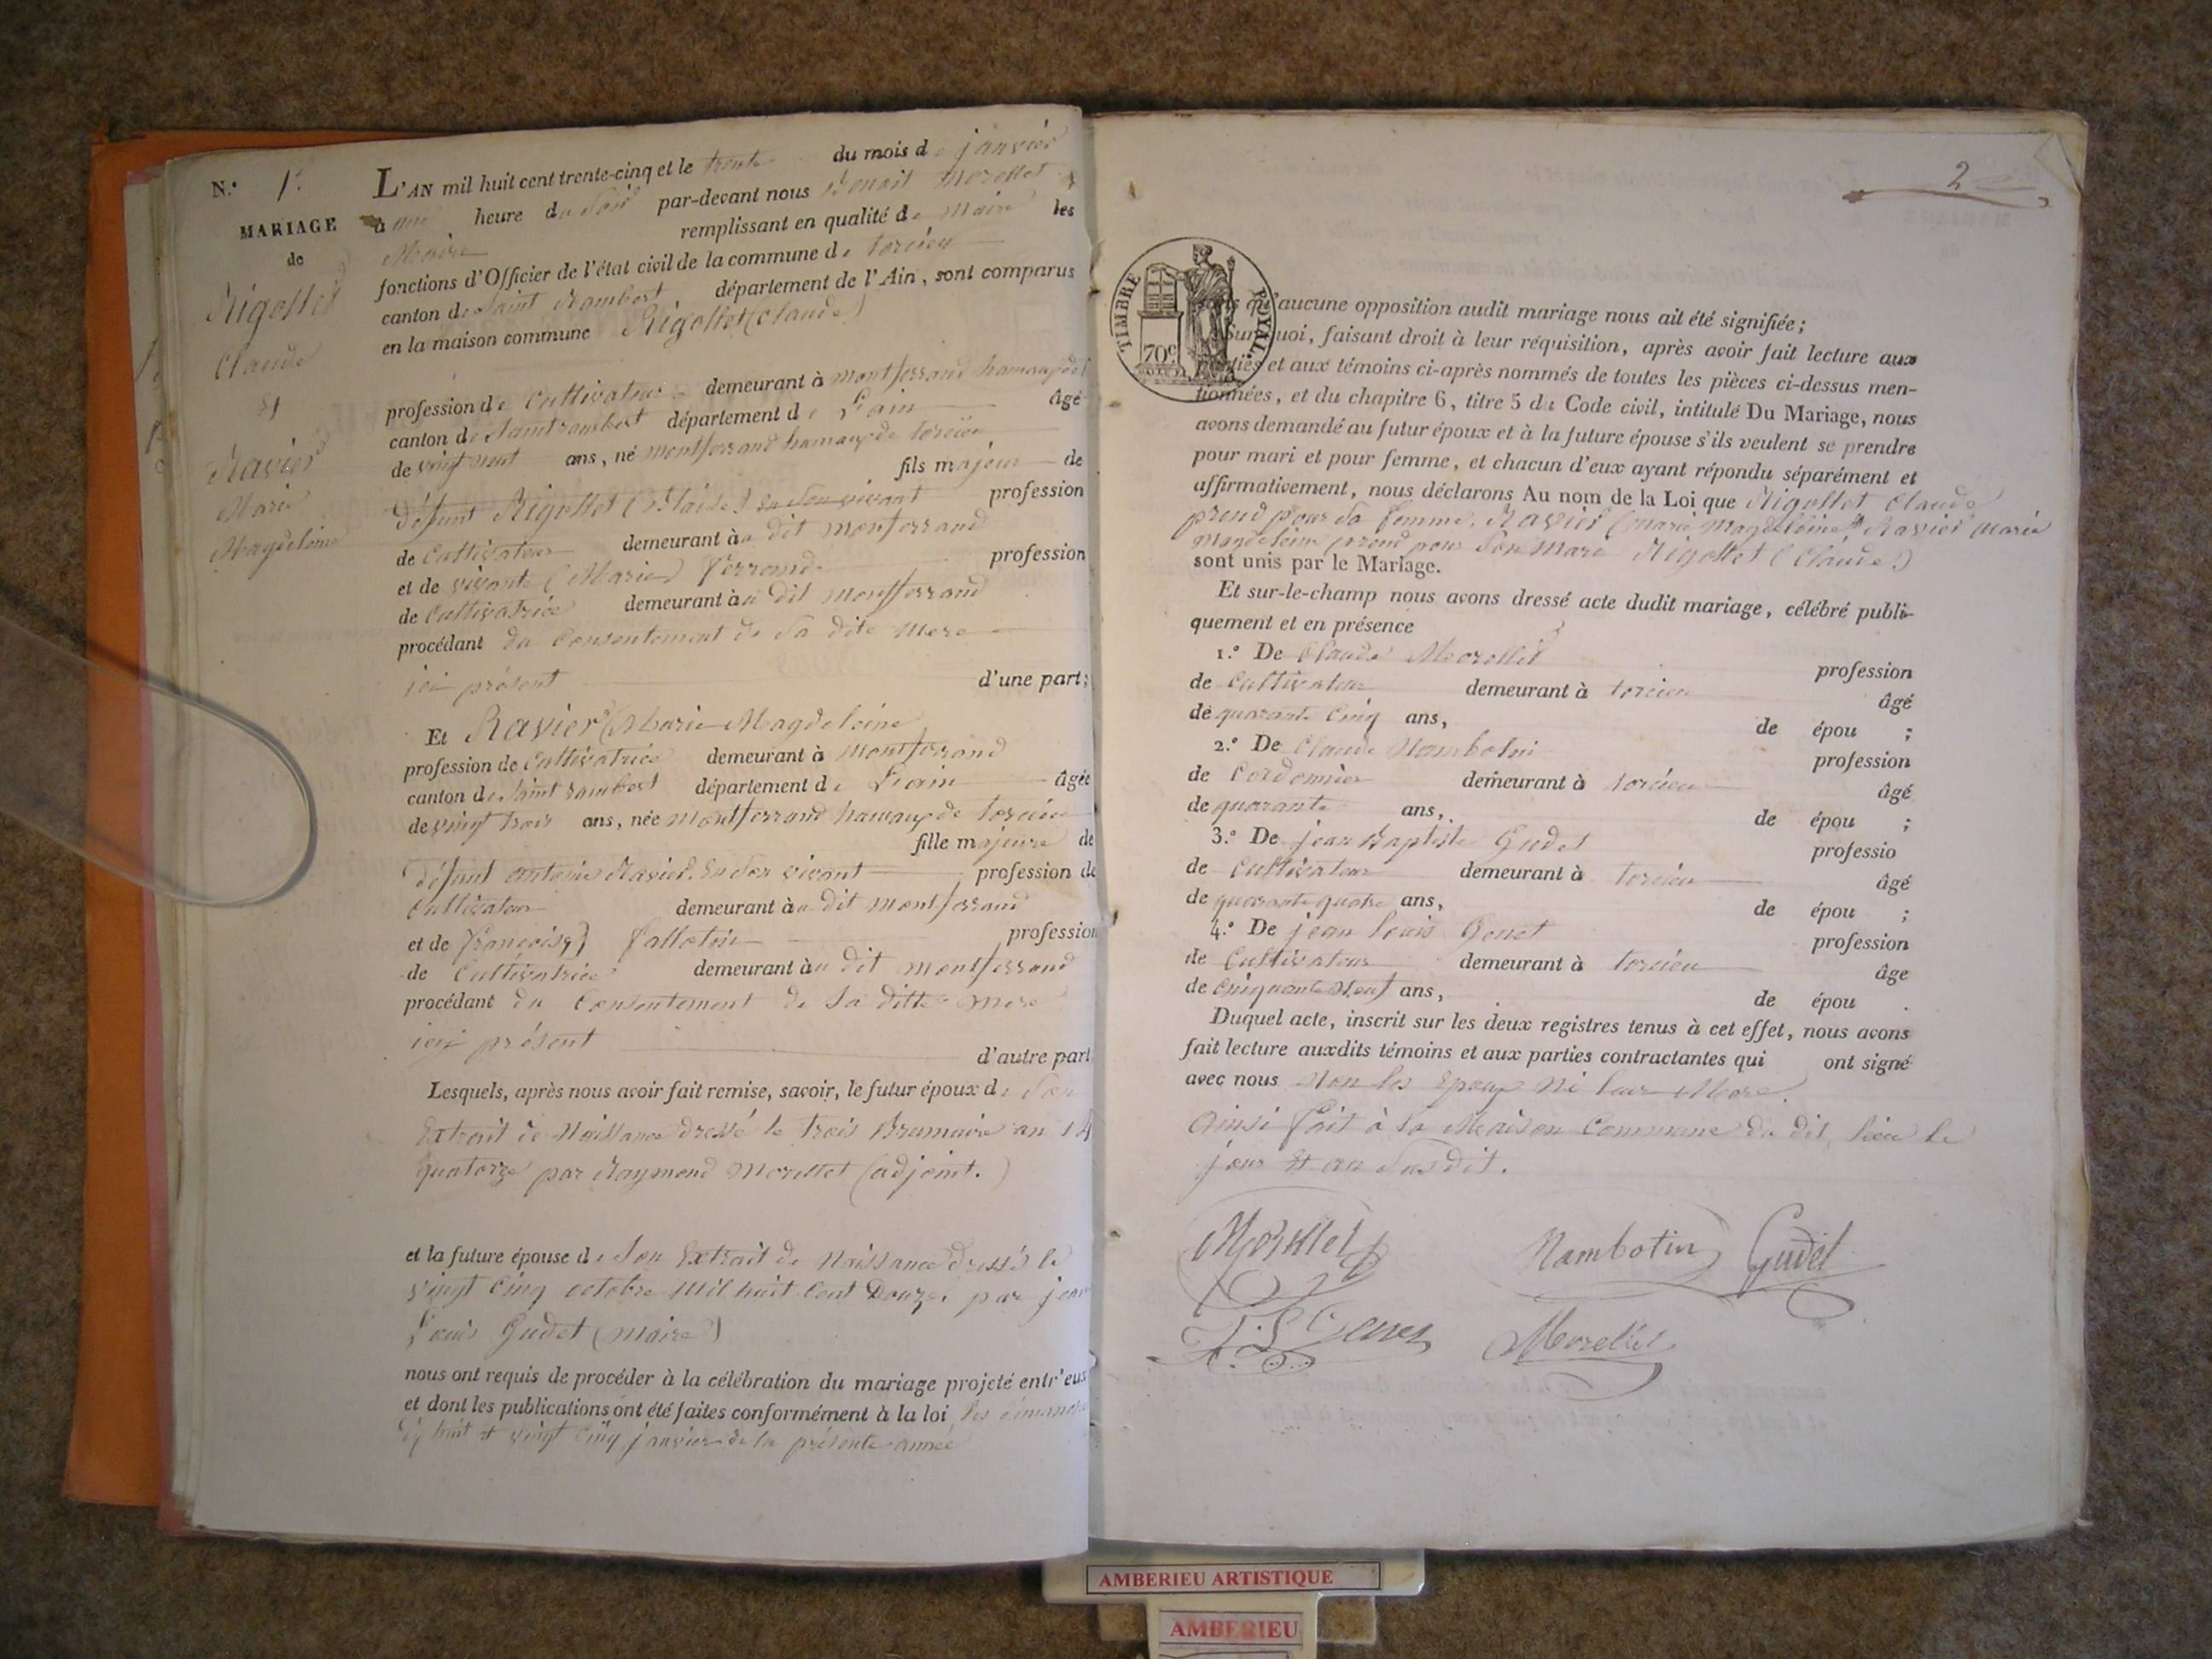 N.° 1.
MARIAGE
de
Rigollet
Claude
Et
Ravier
Marie
Magdeleine
L'AN mil huit cent trente-cinq et le trente du mois de janvier
à une heure du soir par-devant nous Benoit Morellet
Maire remplissant en qualité de Maire les
fonctions d'Officier de l'état civil de la commune de torcieu
canton de Saint Rambert département de l'Ain, sont comparus
en la maison commune Rigollet (Claude)
profession de Cultivateur demeurant à montferrand hameau de
canton de Saint rambert département de L'ain âgé
de vingt neuf ans, né montferrand hameau de torcieu
fils majeur de
défunt Rigollet en son vivant profession
de Cultivateur demeurant au dit montferrand
et de vivante (Marie) Ferrand profession
de Cultivatrice demeurant au dit montferrand
procédant du Consentement de sa dite Mere
ici présent d'une part;
Et Ravier (Marie Magdeleine
profession de Cultivatrice demeurant à montferrand
canton de Saint rambert département de L'ain âgée
de vingt trois ans, née montferrand hameau de torcieu
fille majeure de
défunt antoine Ravier. En son vivant profession de
Cultivateur demeurant au dit montferrand
et de françoise profession
de Cultivatrice demeurant au dit montferrand
procédant du Consentement de sa ditte mere
ici présent d'autre part
Lesquels, après nous avoir fait remise, savoir, le futur époux de son
Extrait de Naissance dressé le trois Brumaire an 14
quatorze par Raymond Morellet (adjoint.)
et la future épouse de son Extrait de Naissance dressé le
vingt Cinq octobre Mil huit Cent Douze. par jean
Louis Gudet (maire)
nous ont requis de procéder à la célébration du mariage projeté entr'eux
et dont les publications ont été faites conformément à la loi les dimanche
dix huit et vingt cinq janvier de la présente année
2
TIMBRE ROYAL.
70c
qu'aucune opposition audit mariage nous ait été signifiée;
Sur quoi, faisant droit à leur réquisition, après avoir fait lecture aux
parties et aux témoins ci-après nommés de toutes les pièces ci-dessus men-
tionnées, et du chapitre 6, titre 5 du Code civil, intitulé Du Mariage, nous
avons demandé au futur époux et à la future épouse s'ils veulent se prendre
pour mari et pour femme, et chacun d'eux ayant répondu séparément et
affirmativement, nous déclarons Au nom de la Loi que Rigollet Claude
prend pour sa femme. Ravier (marie magdeleine) et Ravier Marie
Magdeleine prend pour son mari Rigollet (Claude)
sont unis par le Mariage.
Et sur-le-champ nous avons dressé acte dudit mariage, célébré publi-
quement et en présence
1.° De Claude Morellet profession
de Cultivateur demeurant à torcieu âgé
de quarante Cinq ans, de épou ;
2.° De Claude Nambotin profession
de Cordonnier demeurant à torcieu âgé
de quarante ans, de épou ;
3.° De jean Baptiste Gudet professio
de Cultivateur demeurant à torcieu âgé
de quarante quatre ans, de épou ;
4.° De jean louis Genet profession
de Cultivateur demeurant à torcieu âge
de Cinquante Neuf ans, de épou .
Duquel acte, inscrit sur les deux registres tenus à cet effet, nous avons
fait lecture auxdits témoins et aux parties contractantes qui ont signé
avec nous Non les Epoux Ni leur Mere.
Ainsi fait à la Maison Commune du dit lieu le
jour et an susdit.
Morellet Nambotin Gudet
J. L. Genet Morellet
AMBERIEU ARTISTIQUE
AMBERIEU